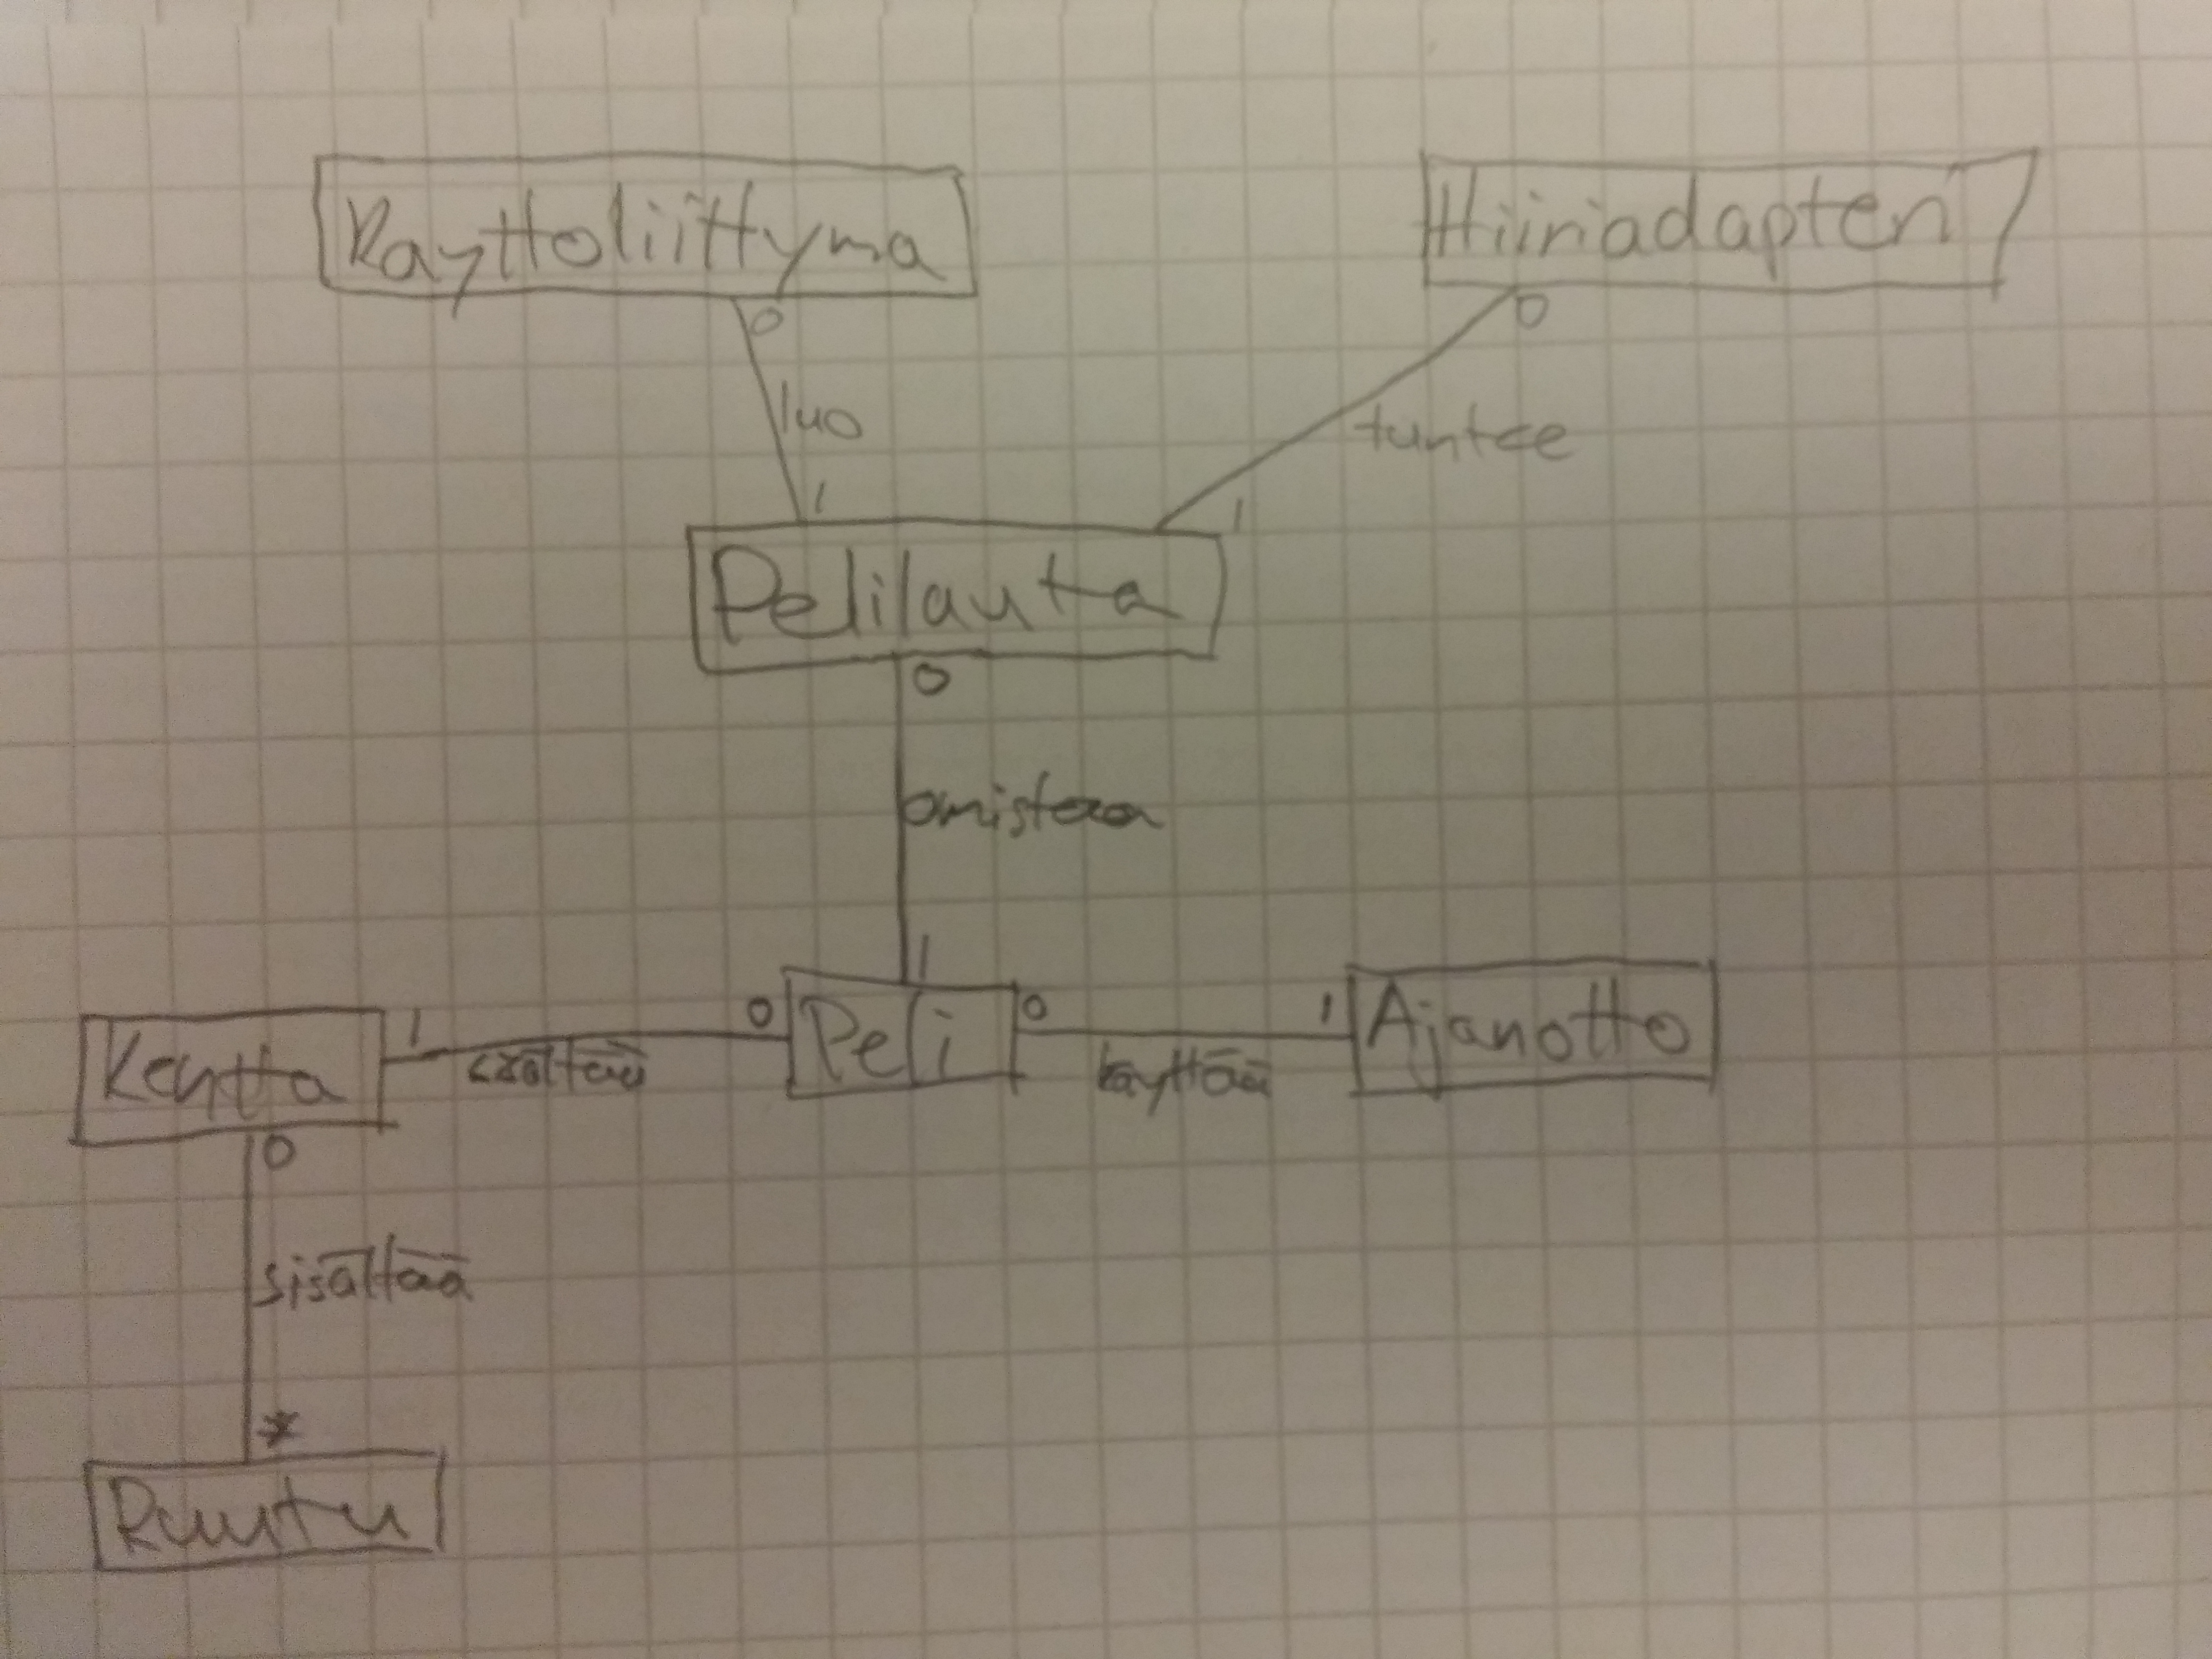 Kayttoliittyma
Hiiriadapteri
0
0
luo
tuntee
1
1
Pelilauta
0
omistaa
1
Kentta
1
sisältää
0
Peli
0
käyttää
1
Ajanotto
0
sisältää
*
Ruutu